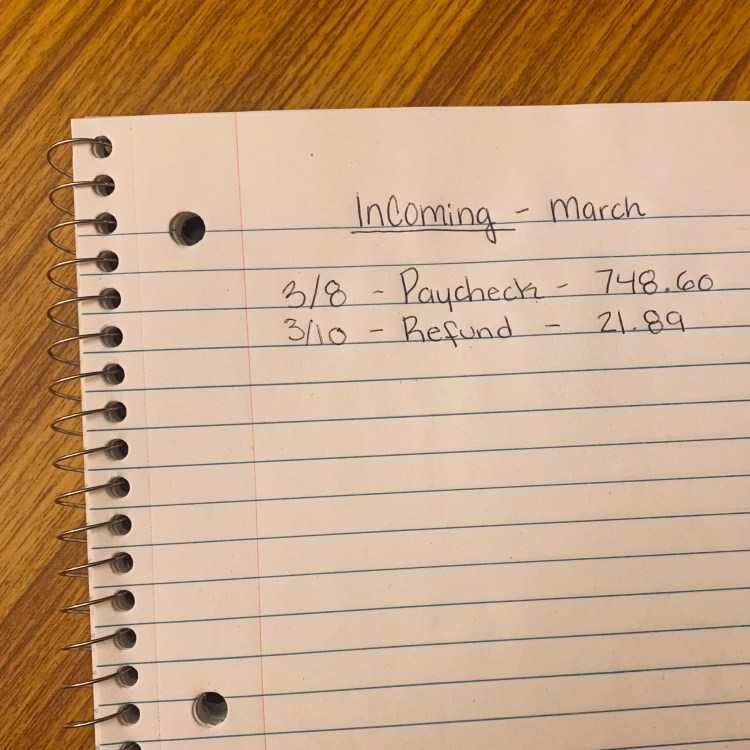 Incoming - March
3/8 - Paycheck - 748.60
3/10 - Refund - 21.89